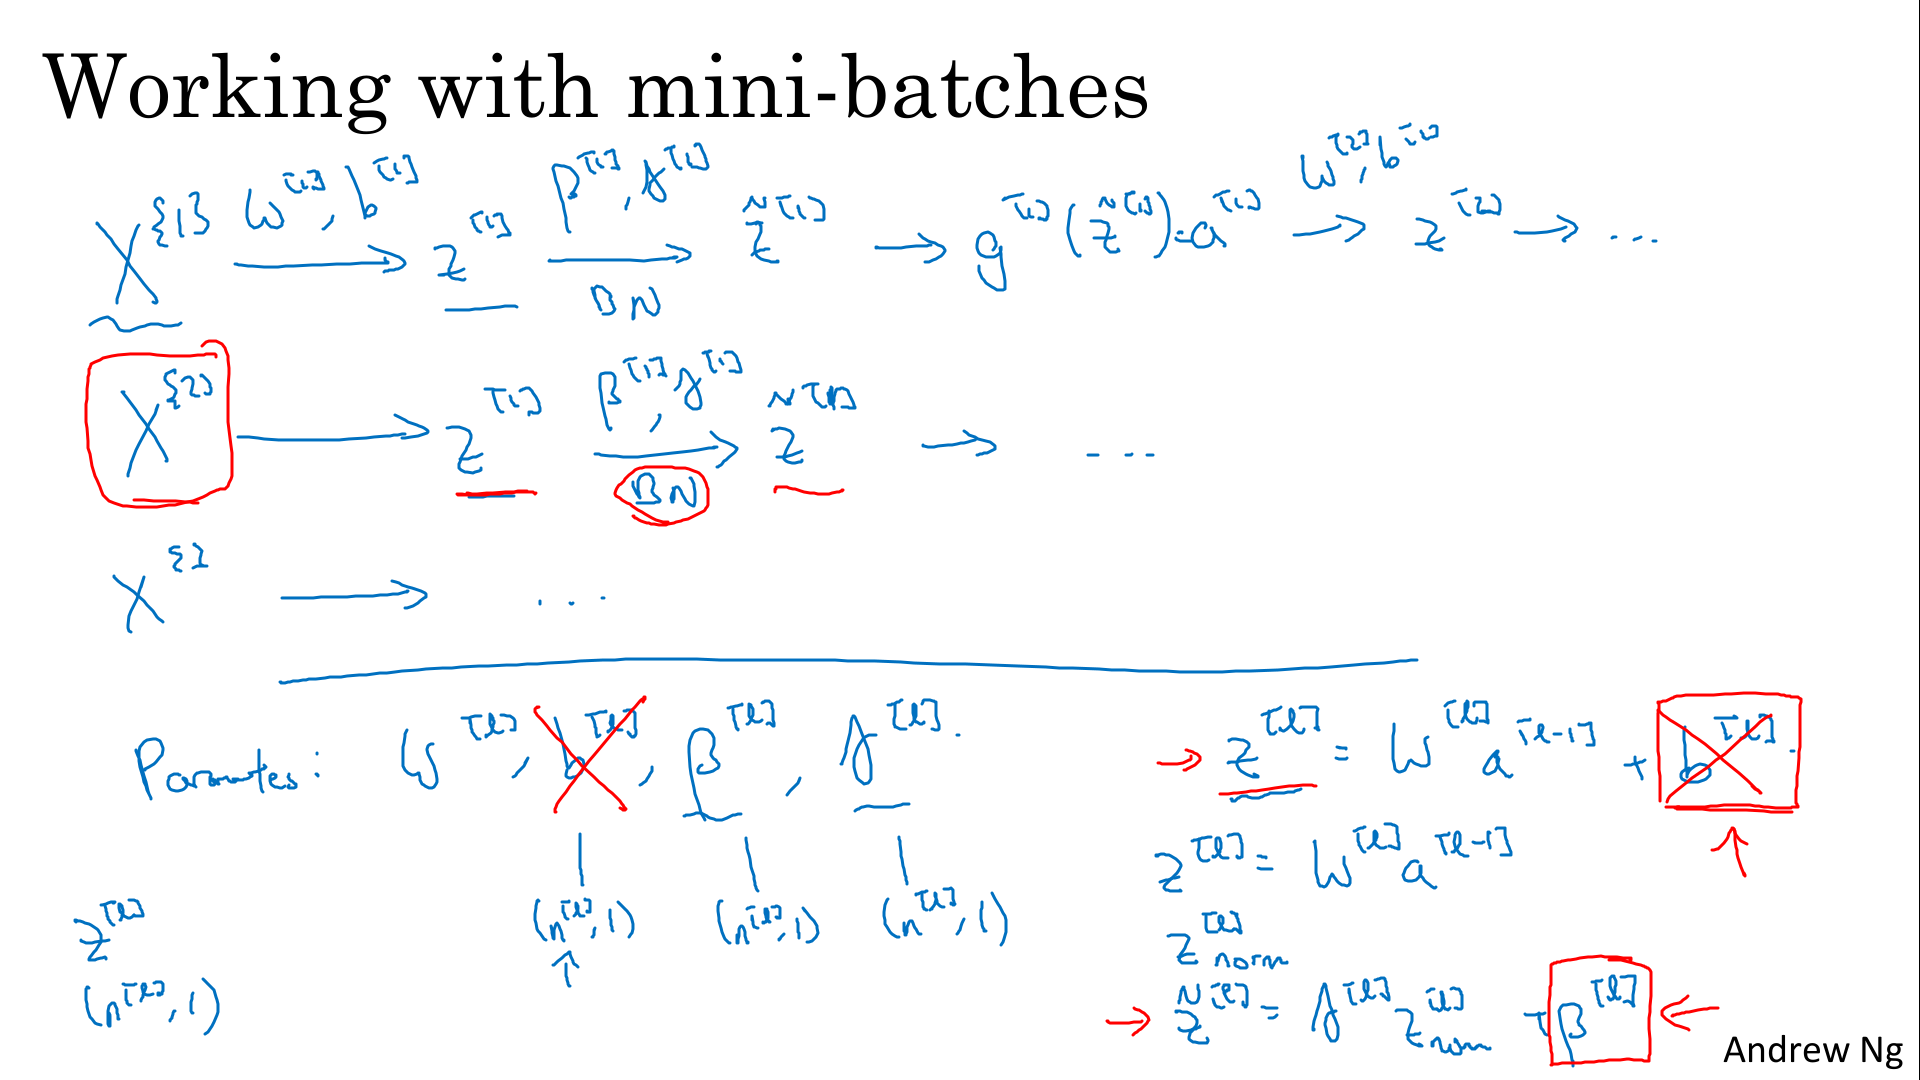 Working with mini-batches
X^{1} W^[1], b^[1] → z^[1] β^[1], γ^[1] → BN z̃^[1] → g^[1](z̃^[1]) = a^[1] W^[2], b^[2] → z^[2] → ...
X^{2} → z^[1] β^[1], γ^[1] → BN z̃^[1] → ...
X^{} → ...
Parameters: W^[l], b^[l], β^[l], γ^[l].
(n^[l], 1) (n^[l], 1) (n^[l], 1)
z^[l]
(n^[l], 1)
→ z^[l] = W^[l] a^[l-1] + b^[l].
z^[l] = W^[l] a^[l-1]
z^[l]_norm
→ z̃^[l] = γ^[l] z^[l]_norm + β^[l] ←
Andrew Ng